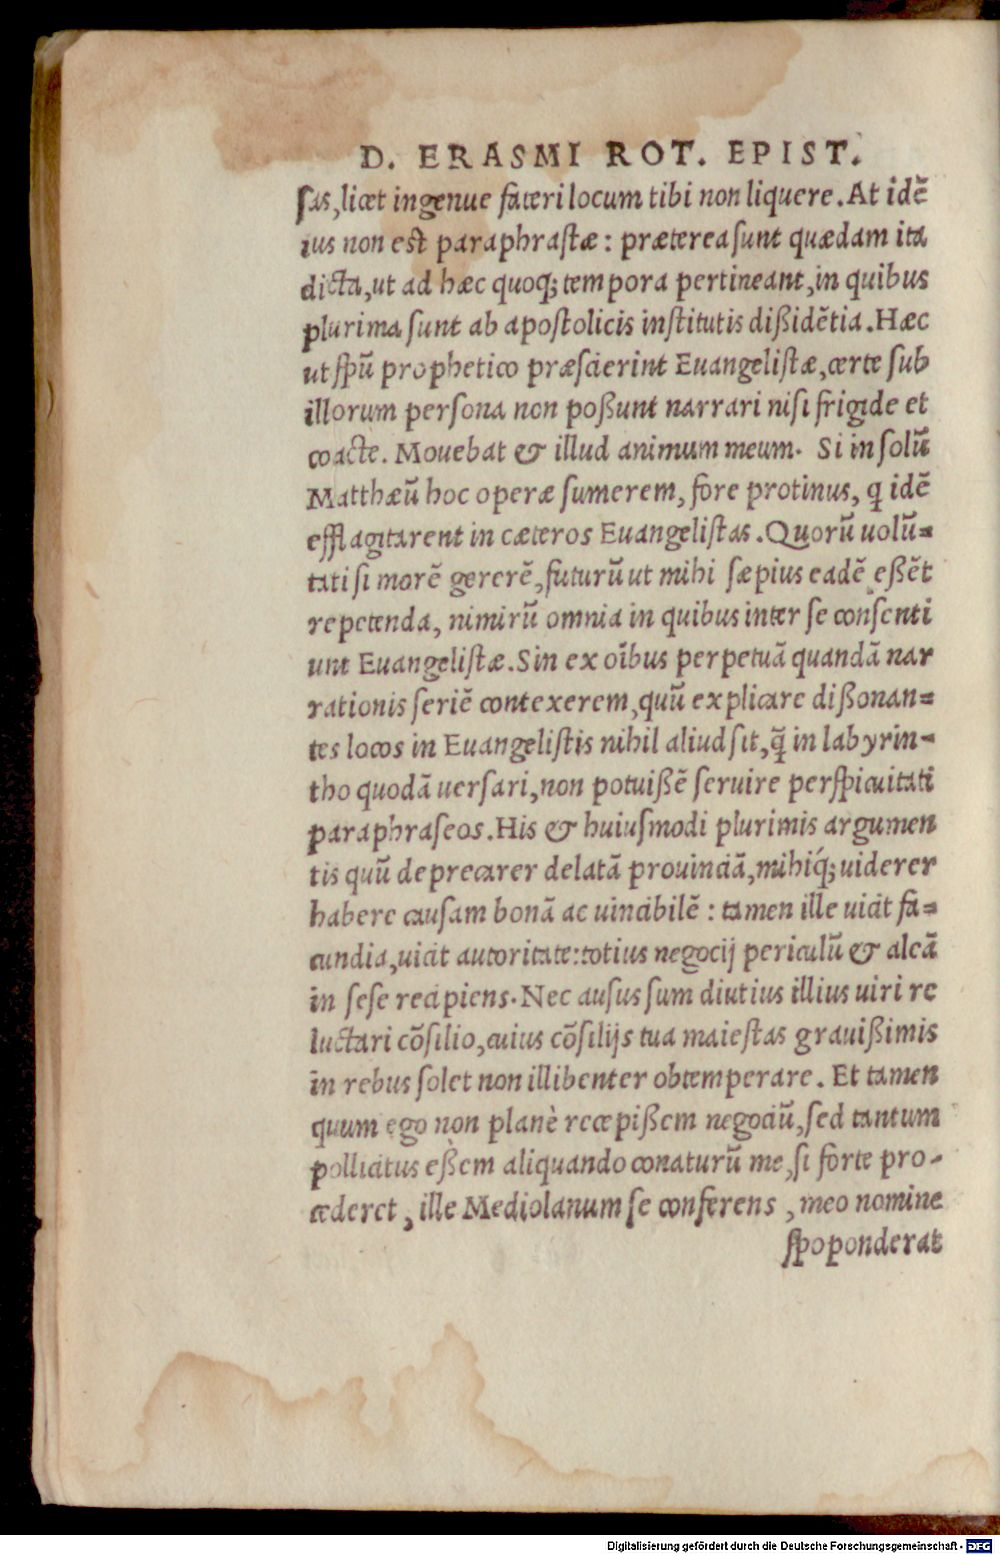 D. ERASMI ROT. EPIST.
sas, licet ingenue fateri locum tibi non liquere. At idē
ius non est paraphrastæ: præterea sunt quædam ita
dicta, ut ad hæc quoq; tempora pertineant, in quibus
plurima sunt ab apostolicis institutis dißidētia. Hæc
ut spū prophetico præscierint Euangelistæ, certe sub
illorum persona non poßunt narrari nisi frigide et
coacte. Mouebat & illud animum meum. Si in solū
Matthæū hoc operæ sumerem, fore protinus, q idē
efflagitarent in cæteros Euangelistas. Quorū uolū=
tati si morē gererē, futurū ut mihi sæpius eadē eßēt
repetenda, nimirū omnia in quibus inter se consenti
unt Euangelistæ. Sin ex oībus perpetuā quandā nar
rationis seriē contexerem, quū explicare dißonan=
tes locos in Euangelistis nihil aliud sit, q̄ in labyrin=
tho quodā uersari, non potuißē seruire perspicuitati
paraphraseos. His & huiusmodi plurimis argumen
tis quū deprecarer delatā prouinciā, mihiq́; uiderer
habere causam bonā ac uincibilē: tamen ille uicit fa=
cundia, uicit autoritate: totius negocij periculū & aleā
in sese recipiens. Nec ausus sum diutius illius uiri re
luctari cōsilio, cuius cōsilijs tua maiestas grauißimis
in rebus solet non illibenter obtemperare. Et tamen
quum ego non planè recepißem negociū, sed tantum
pollicitus eßem aliquando conaturū me, si forte pro-
cederet, ille Mediolanum se conferens, meo nomine
spoponderat
Digitalisierung gefördert durch die Deutsche Forschungsgemeinschaft - DFG